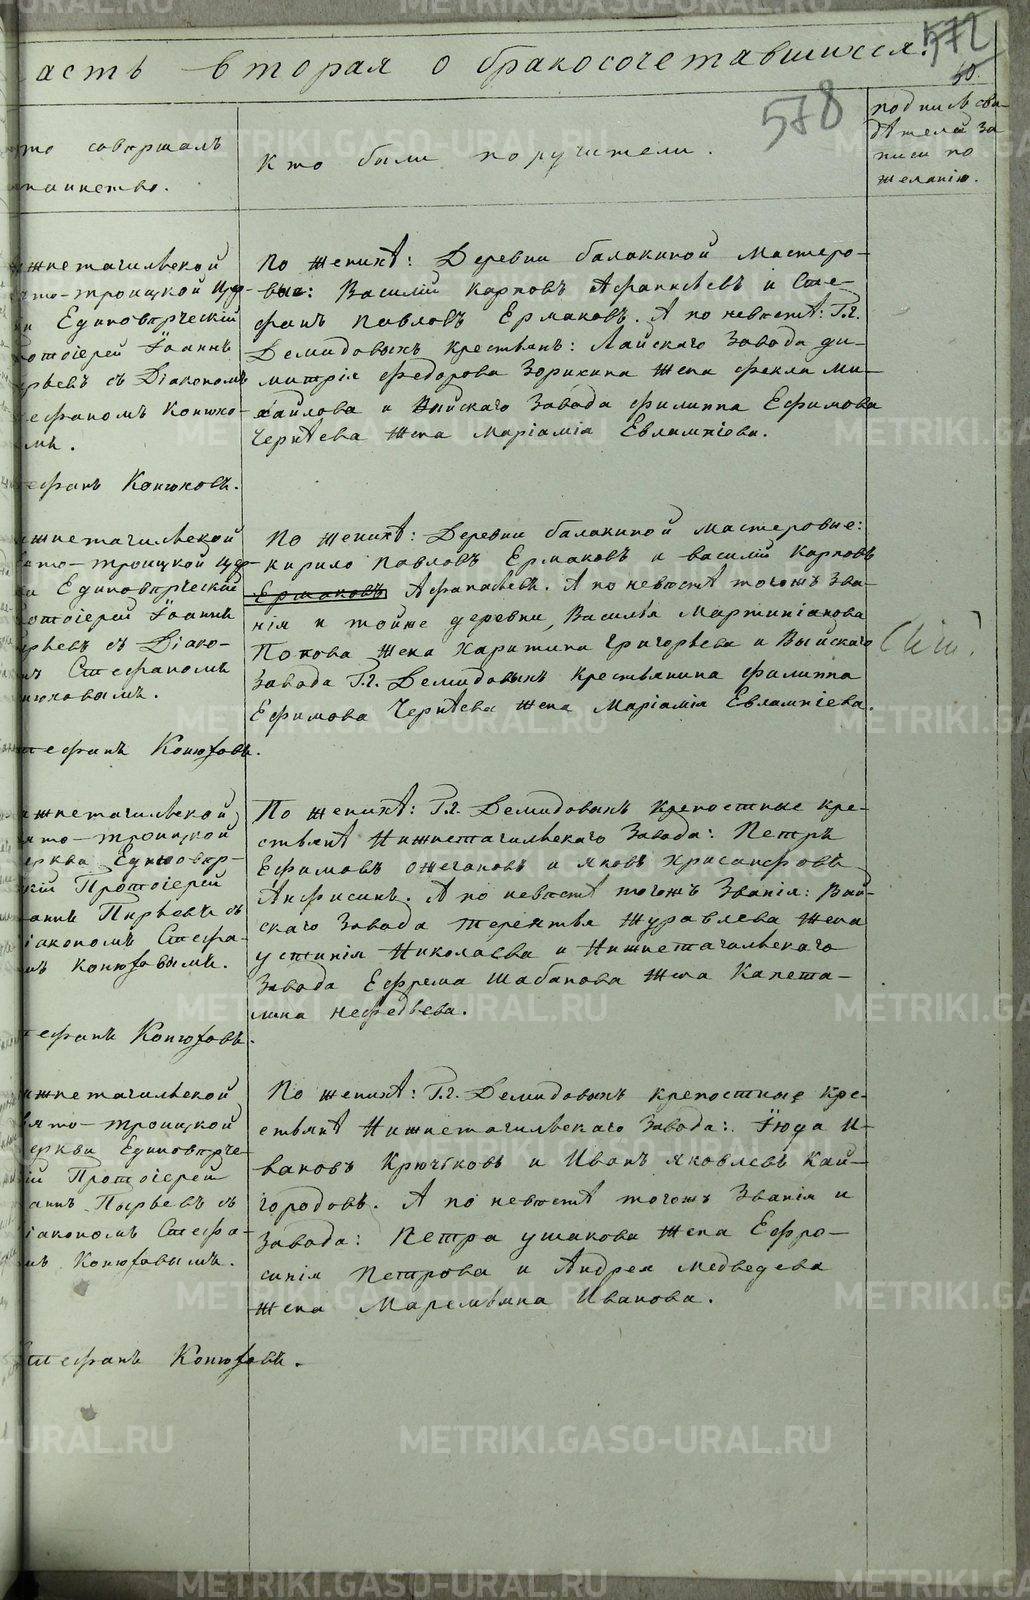 асть вторая о бракосочетавшихся.
572
50.
578
то совершалъ
таинство.
Кто были поручители.
подпись сви-
дѣтелей за
писи по
желанію.
ижнетагильской
ято-троицкой цер-
ви Единовѣрческій
отоіерей Іоаннъ
рьевъ съ Діакономъ
ефаномъ Конюхо-
мъ.
тефанъ Конюховъ.
По женихѣ: Деревни балакиной мастеро-
вые: Василій Карповъ Афанасьевъ и Сте-
фанъ Павловъ Ермаковъ. А по невѣстѣ: Г.г.
Демидовыхъ крестьянъ: Лайскаго Завода ди-
митрія Федорова Зорихина жена Фекла Ми-
хайлова и Выйскаго Завода филиппа Ефимова
Черпѣева жена Маріамія Евлампіева.
ижнетагильской
ято-троицкой цер-
ви Единовѣрческій
отоіерей Іоаннъ
рьевъ съ Діако-
мъ Стефаномъ
нюховымъ.
тефанъ Конюховъ.
По женихѣ: Деревни балакиной мастеровые:
кирило Павловъ Ермаковъ и василій Карповъ
Ермаковъ Афанасьевъ. А по невѣстѣ тогожъ зва-
нія и тойже деревни, Василья Мартиніанова
Попова жена Харитина Григорьева и Выйскаго
Завода Г.г. Демидовыхъ Крестьянина филиппа
Ефимова Черпѣева жена Маріамія Евлампіева.
ижнетагильской
ято-троицкой
ерква Единовѣр-
кій Протоіерей
аннъ Пырьевъ съ
іакономъ Стефа-
мъ Конюховымъ.
тефанъ Конюховъ.
По женихѣ: Г.г. Демидовыхъ крепостные кре-
стьянѣ Нижнетагильскаго Завода: Петръ
Ефимовъ Ожегановъ и яковъ Хрисанфовъ
Анфисинъ. А по невѣстѣ тогожъ Званія: Вый-
скаго Завода терентья Журавлева жена
устинія Николаева и Нижнетагильскаго
Завода Ефрема Шабанова жена Капета-
лина Нефедьева.
ижнетагильской
вято-троицкой
еркви Единовѣрче-
ій Протоіерей
аннъ Пырьевъ съ
іакономъ Стефа-
мъ Конюховымъ.
Стефанъ Конюховъ.
По женихѣ: Г.г. Демидовыхъ крепостные кре-
стьянѣ Нижнетагильскаго Завода: Іюда И-
вановъ Крючковъ и Иванъ яковлевъ Кай-
городовъ. А по невѣстѣ тогожъ Званія и
Завода: Петра ушакова жена Ефро-
синія Петрова и Андрея медведева
жена Маремьяна Иванова.
METRIKI.GASO-URAL.RU